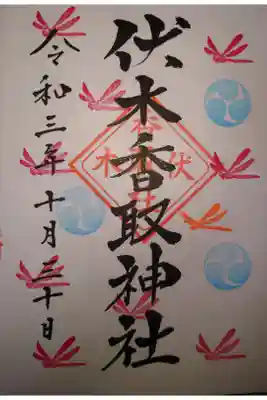 伏木香取神社
令和三年十月三十日
伏
木